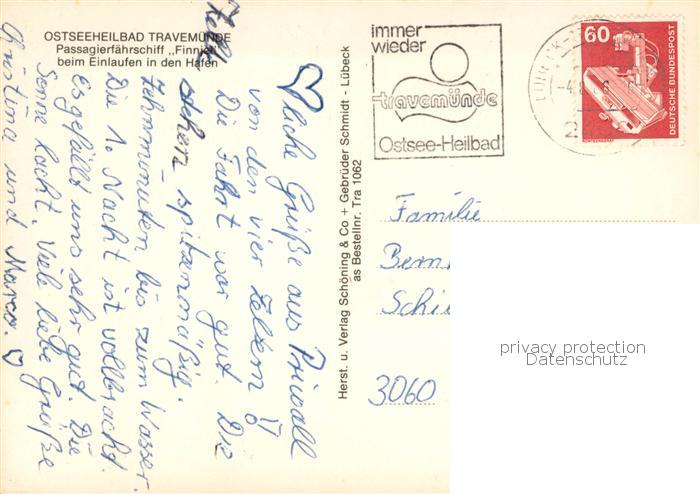 OSTSEEHEILBAD TRAVEMÜNDE
Passagierfährschiff „Finnjet"
beim Einlaufen in den Hafen
♡liche Grüße aus Priwall
von den vier Zeltern!
Die Fahrt war gut. Die
Zelte stehen spitzenmäßig.
Zehn Minuten bis zum Wasser.
Die 1. Nacht ist vollbracht.
Es gefällt uns sehr gut. Die
Sonne lacht. Viele liebe Grüße
Christina und Marco. ♡
Herst. u. Verlag Schöning & Co + Gebrüder Schmidt - Lübeck
as Bestellnr. Tra 1062
immer
wieder
travemünde
Ostsee-Heilbad
LÜBECK
60
DEUTSCHE BUNDESPOST
Familie
3060
privacy protection
Datenschutz